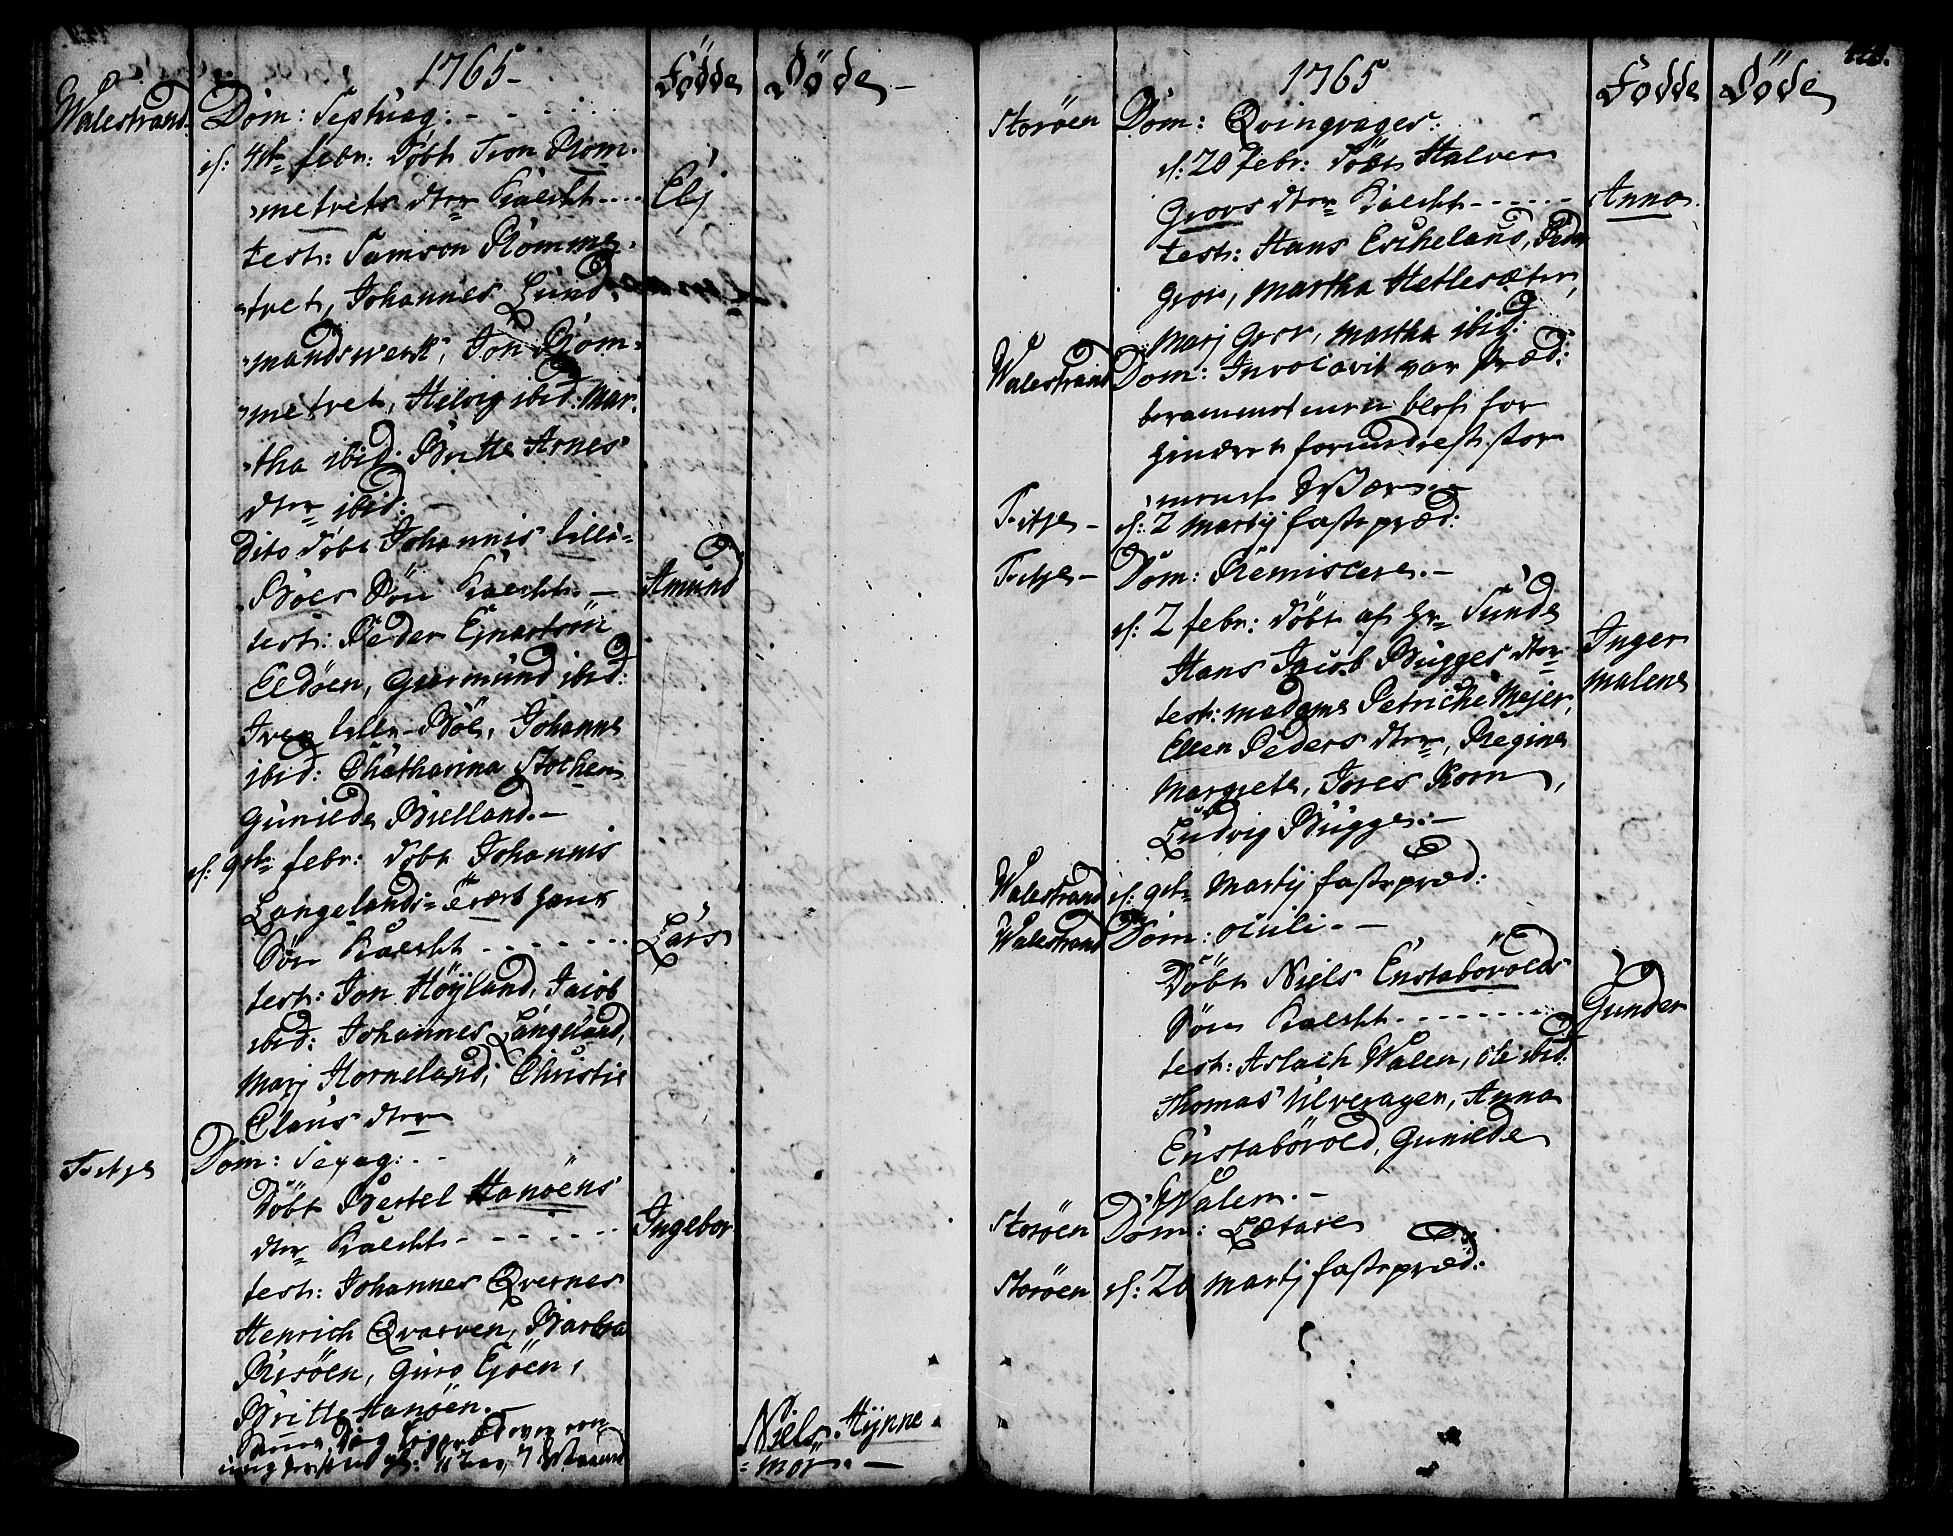 1765-
Födde
Döde -
Walestrand
Dom: Septuag: - - - -
d: 4de febr: Döbt Iron Röm-
metrets dtr Kaldt ....
Elj
test: Samson Römme-
tret, Johannes Lund-
mandswerk, Jon Röm-
metret, Helvig ibid: Mar-
tha ibid: Britte Arnes
dtr ibid: -
Dito Döbt Johannis lille-
Böes Sön Kaldt. -
Amund
test: Peder
Eldöen, Giermund ibid:
Iver lille-Böe, Johanne
ibid: Chatharina Stochen
Gunilde Bielland. -
d: 9de febr: Döbt Johannis
Langelands
Sön Kaldt - - - - - - -
Lars
test: Jon Höyland, Jacob
ibid: Johannes Langeland,
Marj Horneland, Christi
Claus dtr
Fitje
Dom: Sexag: - -
Döbt Bertel Hanöens
dtr Kaldt - - - - - -
Ingebor
test: Johannes Qvernes
Henrich Qvarven, Barbra
Risöen, Guro Ejöen,
Britte Hanöen. -
Samme Dag
Niels Hynne-
mor. -
1765
Födde
Döde
Storöen
Dom: Qvinqvages:
d: 20 febr: Döbt Halver
Grovs dtr Kaldt - - - - - -
Anna
test: Hans Escheland, Peder
Grov, Martha Hetlesæter,
Marj Grov, Martha ibid:
Walestrand
Dom: Invocavit var Præd:
berammet men blef for-
hindret formedelst stor
Fitje -
d: 2 Martij fastepræd:
Fitje -
Dom: Reminiscere. -
d: 2 febr: Döbt af Hr Sunde
Hans Jacob Bugges dtr
Inger
Malene
test: Madame Petriche Mejer,
Ellen Peders dtr, Regine
Margrete, Jores Korn,
Ludvig Bugge. -
Walestrand
d: 9de Martij fastepræd:
Walestrand
Dom: Oculi. -
Döbt Niels Enstabövolds
Sön Kaldt - - - - - - -
Gunder
test: Aslach Walen, Ole ibid:
Thomas Ulveragen, Anna
Enstabövold, Gunilde
Walen. -
Storöen
Dom: Lætare
Storöen
d: 20 Martij fastepræd: